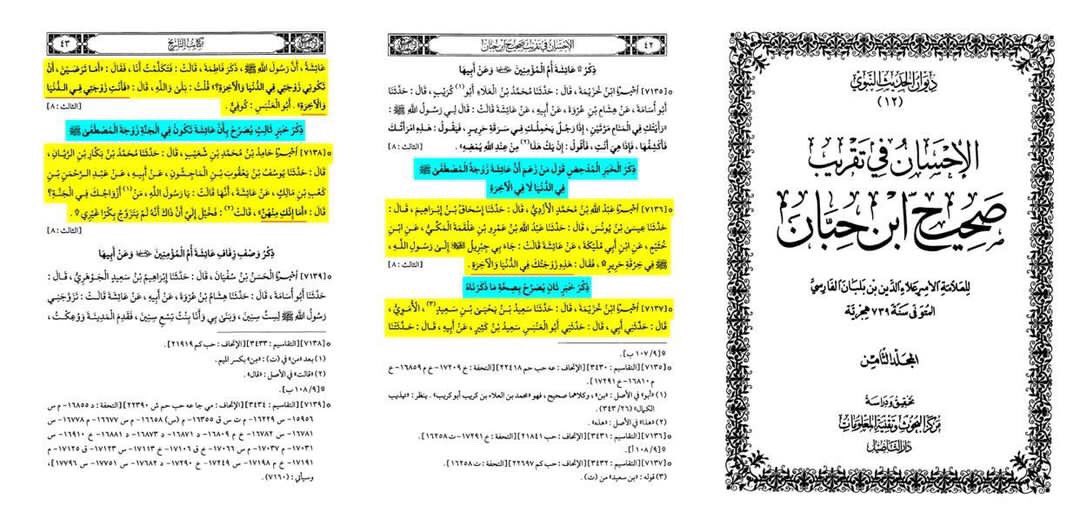 ديوان الحديث النبوي
(١٢)
الإحسان في تقريب
صحيح ابن حبان
للعلامة الأمير علاء الدين بن بلبان الفارسي
المتوفى سنة ٧٣٩ هجرية
المجلد الثامن
تحقيق ودراسة
مركز البحوث وتقنية المعلومات
دار التأصيل
الإحسان في تقريب صحيح ابن حبان
٤٢
ذِكْرُ عَائِشَةَ أُمِّ الْمُؤْمِنِينَ وَعَنْ أَبِيهَا
[٧١٣٥] أَخْبَرَنَا ابْنُ خُزَيْمَةَ، قَالَ: حَدَّثَنَا مُحَمَّدُ بْنُ الْعَلَاءِ أَبُو(١) كُرَيْبٍ، قَالَ: حَدَّثَنَا
أَبُو أُسَامَةَ، عَنْ هِشَامِ بْنِ عُرْوَةَ، عَنْ أَبِيهِ، عَنْ عَائِشَةَ قَالَتْ: قَالَ لِي رَسُولُ اللَّهِ ﷺ:
«رَأَيْتُكِ فِي الْمَنَامِ مَرَّتَيْنِ، إِذَا رَجُلٌ يَحْمِلُكِ فِي سَرَقَةِ حَرِيرٍ، فَيَقُولُ: هَذِهِ امْرَأَتُكَ
فَأَكْشِفُهَا، فَإِذَا هِيَ أَنْتِ، فَأَقُولُ: إِنْ يَكُ هَذَا(٢) مِنْ عِنْدِ اللَّهِ يُمْضِهِ». [الثالث: ٨]
ذِكْرُ الْخَبَرِ الْمُدْحِضِ قَوْلَ مَنْ زَعَمَ أَنَّ عَائِشَةَ زَوْجَةُ الْمُصْطَفَى ﷺ
فِي الدُّنْيَا لَا فِي الْآخِرَةِ
[٧١٣٦] أَخْبَرَنَا عَبْدُ اللَّهِ بْنُ مُحَمَّدٍ الْأَزْدِيُّ، قَالَ: حَدَّثَنَا إِسْحَاقُ بْنُ إِبْرَاهِيمَ، قَالَ:
حَدَّثَنَا عِيسَى بْنُ يُونُسَ، قَالَ: حَدَّثَنَا عَبْدُ اللَّهِ بْنُ عَمْرِو بْنِ عَلْقَمَةَ الْمَكِّيُّ، عَنِ ابْنِ
خُثَيْمٍ، عَنِ ابْنِ أَبِي مُلَيْكَةَ، عَنْ عَائِشَةَ قَالَتْ: جَاءَ بِي جِبْرِيلُ إِلَى رَسُولِ اللَّهِ
ﷺ فِي خِرْقَةِ حَرِيرٍ، فَقَالَ: هَذِهِ زَوْجَتُكَ فِي الدُّنْيَا وَالْآخِرَةِ. [الثالث: ٨]
ذِكْرُ خَبَرٍ ثَانٍ يُصَرِّحُ بِصِحَّةِ مَا ذَكَرْنَاهُ
[٧١٣٧] أَخْبَرَنَا ابْنُ خُزَيْمَةَ، قَالَ: حَدَّثَنَا سَعِيدُ بْنُ يَحْيَى بْنِ سَعِيدٍ(٣) الْأُمَوِيُّ،
قَالَ: حَدَّثَنِي أَبِي، قَالَ: حَدَّثَنِي أَبُو الْعَنْبَسِ سَعِيدُ بْنُ كَثِيرٍ، عَنْ أَبِيهِ، قَالَ: حَدَّثَتْنَا
[٩/١٠٧ ب].
[٧١٣٥] [التقاسيم: ٣٤٣٠] [الإتحاف: عه حب حم ٢٢٤١٨] [التحفة: خ ١٧٢٠٩- خ م ١٦٨٥٩-
م ١٦٨١٠- خ ١٧٢٩١].
(١) «أبو» في الأصل: «بن»، وكلاهما صحيح، فهو: محمد بن العلاء بن كريب أبو كريب. ينظر: «تهذيب
الكمال» (٢٦/ ٢٤٣).
(٢) «هذا» في الأصل: «هذه».
[٧١٣٦] [التقاسيم: ٣٤٣١] [الإتحاف: حب ٢١٨٤١] [التحفة: خ ١٧٢٩١- ت ١٦٢٥٨].
[٩/١٠٨ أ].
[٧١٣٧] [التقاسيم: ٣٤٣٢] [الإتحاف: حب كم ٢٢٦٩٧] [التحفة: ت ١٦٢٥٨].
(٣) قوله: «بن سعيد» من (ت).
كتاب التاريخ
٤٣
عَائِشَةُ، أَنَّ رَسُولَ اللَّهِ ﷺ، ذَكَرَ فَاطِمَةَ، قَالَتْ: فَتَكَلَّمْتُ أَنَا، فَقَالَ: «أَمَا تَرْضَيْنَ أَنْ
تَكُونِي زَوْجَتِي فِي الدُّنْيَا وَالْآخِرَةِ؟» قُلْتُ: بَلَى وَاللَّهِ، قَالَ: «فَأَنْتِ زَوْجَتِي فِي الدُّنْيَا
وَالْآخِرَةِ». أَبُو الْعَنْبَسِ: كُوفِيٌّ. [الثالث: ٨]
ذِكْرُ خَبَرٍ ثَالِثٍ يُصَرِّحُ بِأَنَّ عَائِشَةَ تَكُونُ فِي الْجَنَّةِ زَوْجَةَ الْمُصْطَفَى ﷺ
[٧١٣٨] أَخْبَرَنَا حَامِدُ بْنُ مُحَمَّدِ بْنِ شُعَيْبٍ، قَالَ: حَدَّثَنَا مُحَمَّدُ بْنُ بَكَّارِ بْنِ الرَّيَّانِ، قَالَ:
حَدَّثَنَا يُوسُفُ بْنُ يَعْقُوبَ بْنِ الْمَاجِشُونِ، عَنْ أَبِيهِ، عَنْ عَبْدِ الرَّحْمَنِ بْنِ
كَعْبِ بْنِ مَالِكٍ، عَنْ عَائِشَةَ، أَنَّهَا قَالَتْ: يَا رَسُولَ اللَّهِ، مَنْ(١) أَزْوَاجُكَ فِي الْجَنَّةِ؟
قَالَ: «أَمَا إِنَّكِ مِنْهُنَّ»، قَالَتْ(٢): فَخُيِّلَ إِلَيَّ أَنَّ ذَاكَ أَنَّهُ لَمْ يَتَزَوَّجْ بِكْرًا غَيْرِي.
[الثالث: ٨]
ذِكْرُ وَصْفِ زِفَافِ عَائِشَةَ أُمِّ الْمُؤْمِنِينَ وَعَنْ أَبِيهَا
[٧١٣٩] أَخْبَرَنَا الْحَسَنُ بْنُ سُفْيَانَ، قَالَ: حَدَّثَنَا إِبْرَاهِيمُ بْنُ سَعِيدٍ الْجَوْهَرِيُّ، قَالَ:
حَدَّثَنَا أَبُو أُسَامَةَ، قَالَ: حَدَّثَنَا هِشَامُ بْنُ عُرْوَةَ، عَنْ أَبِيهِ، عَنْ عَائِشَةَ قَالَتْ: تَزَوَّجَنِي
رَسُولُ اللَّهِ ﷺ لِسِتِّ سِنِينَ، وَبَنَى بِي وَأَنَا بِنْتُ تِسْعِ سِنِينَ، فَقَدِمَ الْمَدِينَةَ وَوُعِكْتُ،
[٧١٣٨] [التقاسيم: ٣٤٣٣] [الإتحاف: حب كم ٢١٩١٩].
(١) بعد «من» في (ت): «من» بكسر الميم.
(٢) «قالت» في الأصل: «قال».
[٩/١٠٨ ب].
[٧١٣٩] [التقاسيم: ٣٤٣٤] [الإتحاف: مي جا عه حب حم ش ٢٢٣٩٠] [التحفة: د ١٦٨٥٥- م س
وسيأتي: (٧١٦٠).